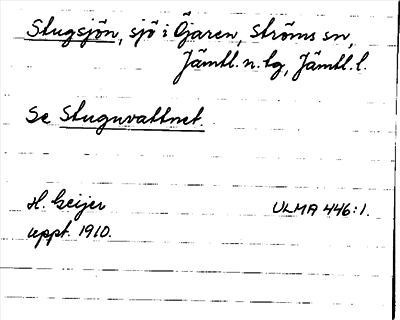 Stugsjön, sjö i Öjaren, Ströms sn,
Jämtl. n. tg, Jämtl. l.
Se Stuguvattnet.
H. Geijer
uppt. 1910.
ULMA 446:1.